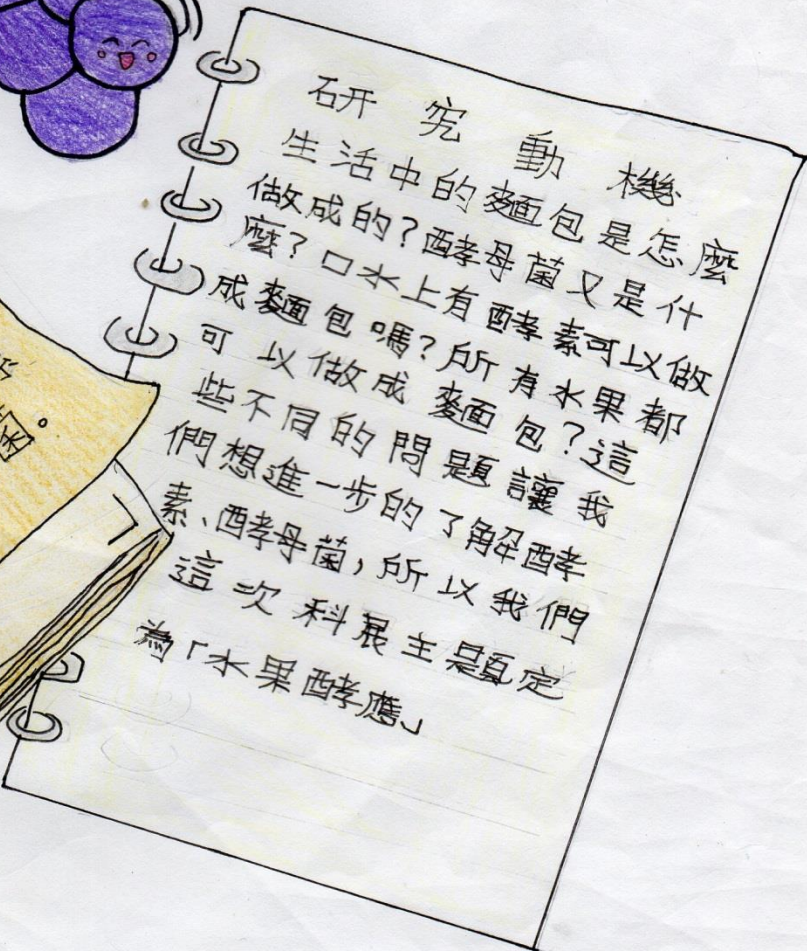 研究動機
生活中的麵包是怎麼
做成的?酵母菌又是什
麼?口水上有酵素可以做
成麵包嗎?所有水果都
可以做成麵包?這
些不同的問題讓我
們想進一步的了解酵
素、酵母菌,所以我們
這次科展主題定
為「水果酵應」
。